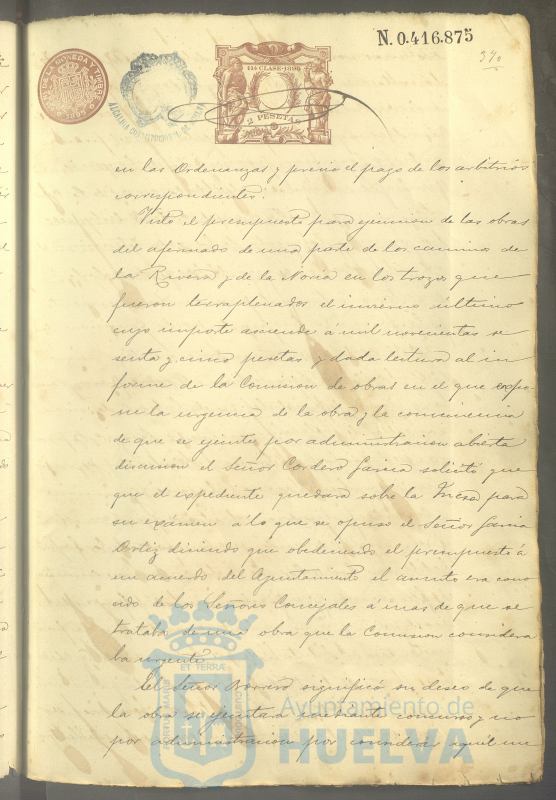 N. 0.416.875
340
11ª CLASE-1895
2 PESETAS
en las Ordenanzas y previo el pago de los arbitrios
correspondientes.
Visto el presupuesto para ejecucion de las obras
del afirmado de una parte de los caminos de
la Rivera y de la Noria en los trozos que
fueron terraplenados el invierno último
cuyo importe asciende á mil novecientas se
senta y cinco pesetas y dada lectura al in
forme de la Comision de obras en el que expo-
ne la urgencia de la obra y la conveniencia
de que se ejecute por administracion abierta
discusion el Señor Cordero Garcia solicitó que
que el expediente quedara sobre la Mesa para
su exámen á lo que se opuso el Señor Garcia
Ortiz diciendo que obedeciendo el presupuesto á
un acuerdo del Ayuntamiento el asunto era cono
cido de los Señores Concejales á mas de que se
trataba de una obra que la Comision considera
ba urgente.
El Señor Borrero significó su deseo de que
la obra se ejecutara mediante concurso y no
por administracion por considerar aquél un
Ayuntamiento de
HUELVA